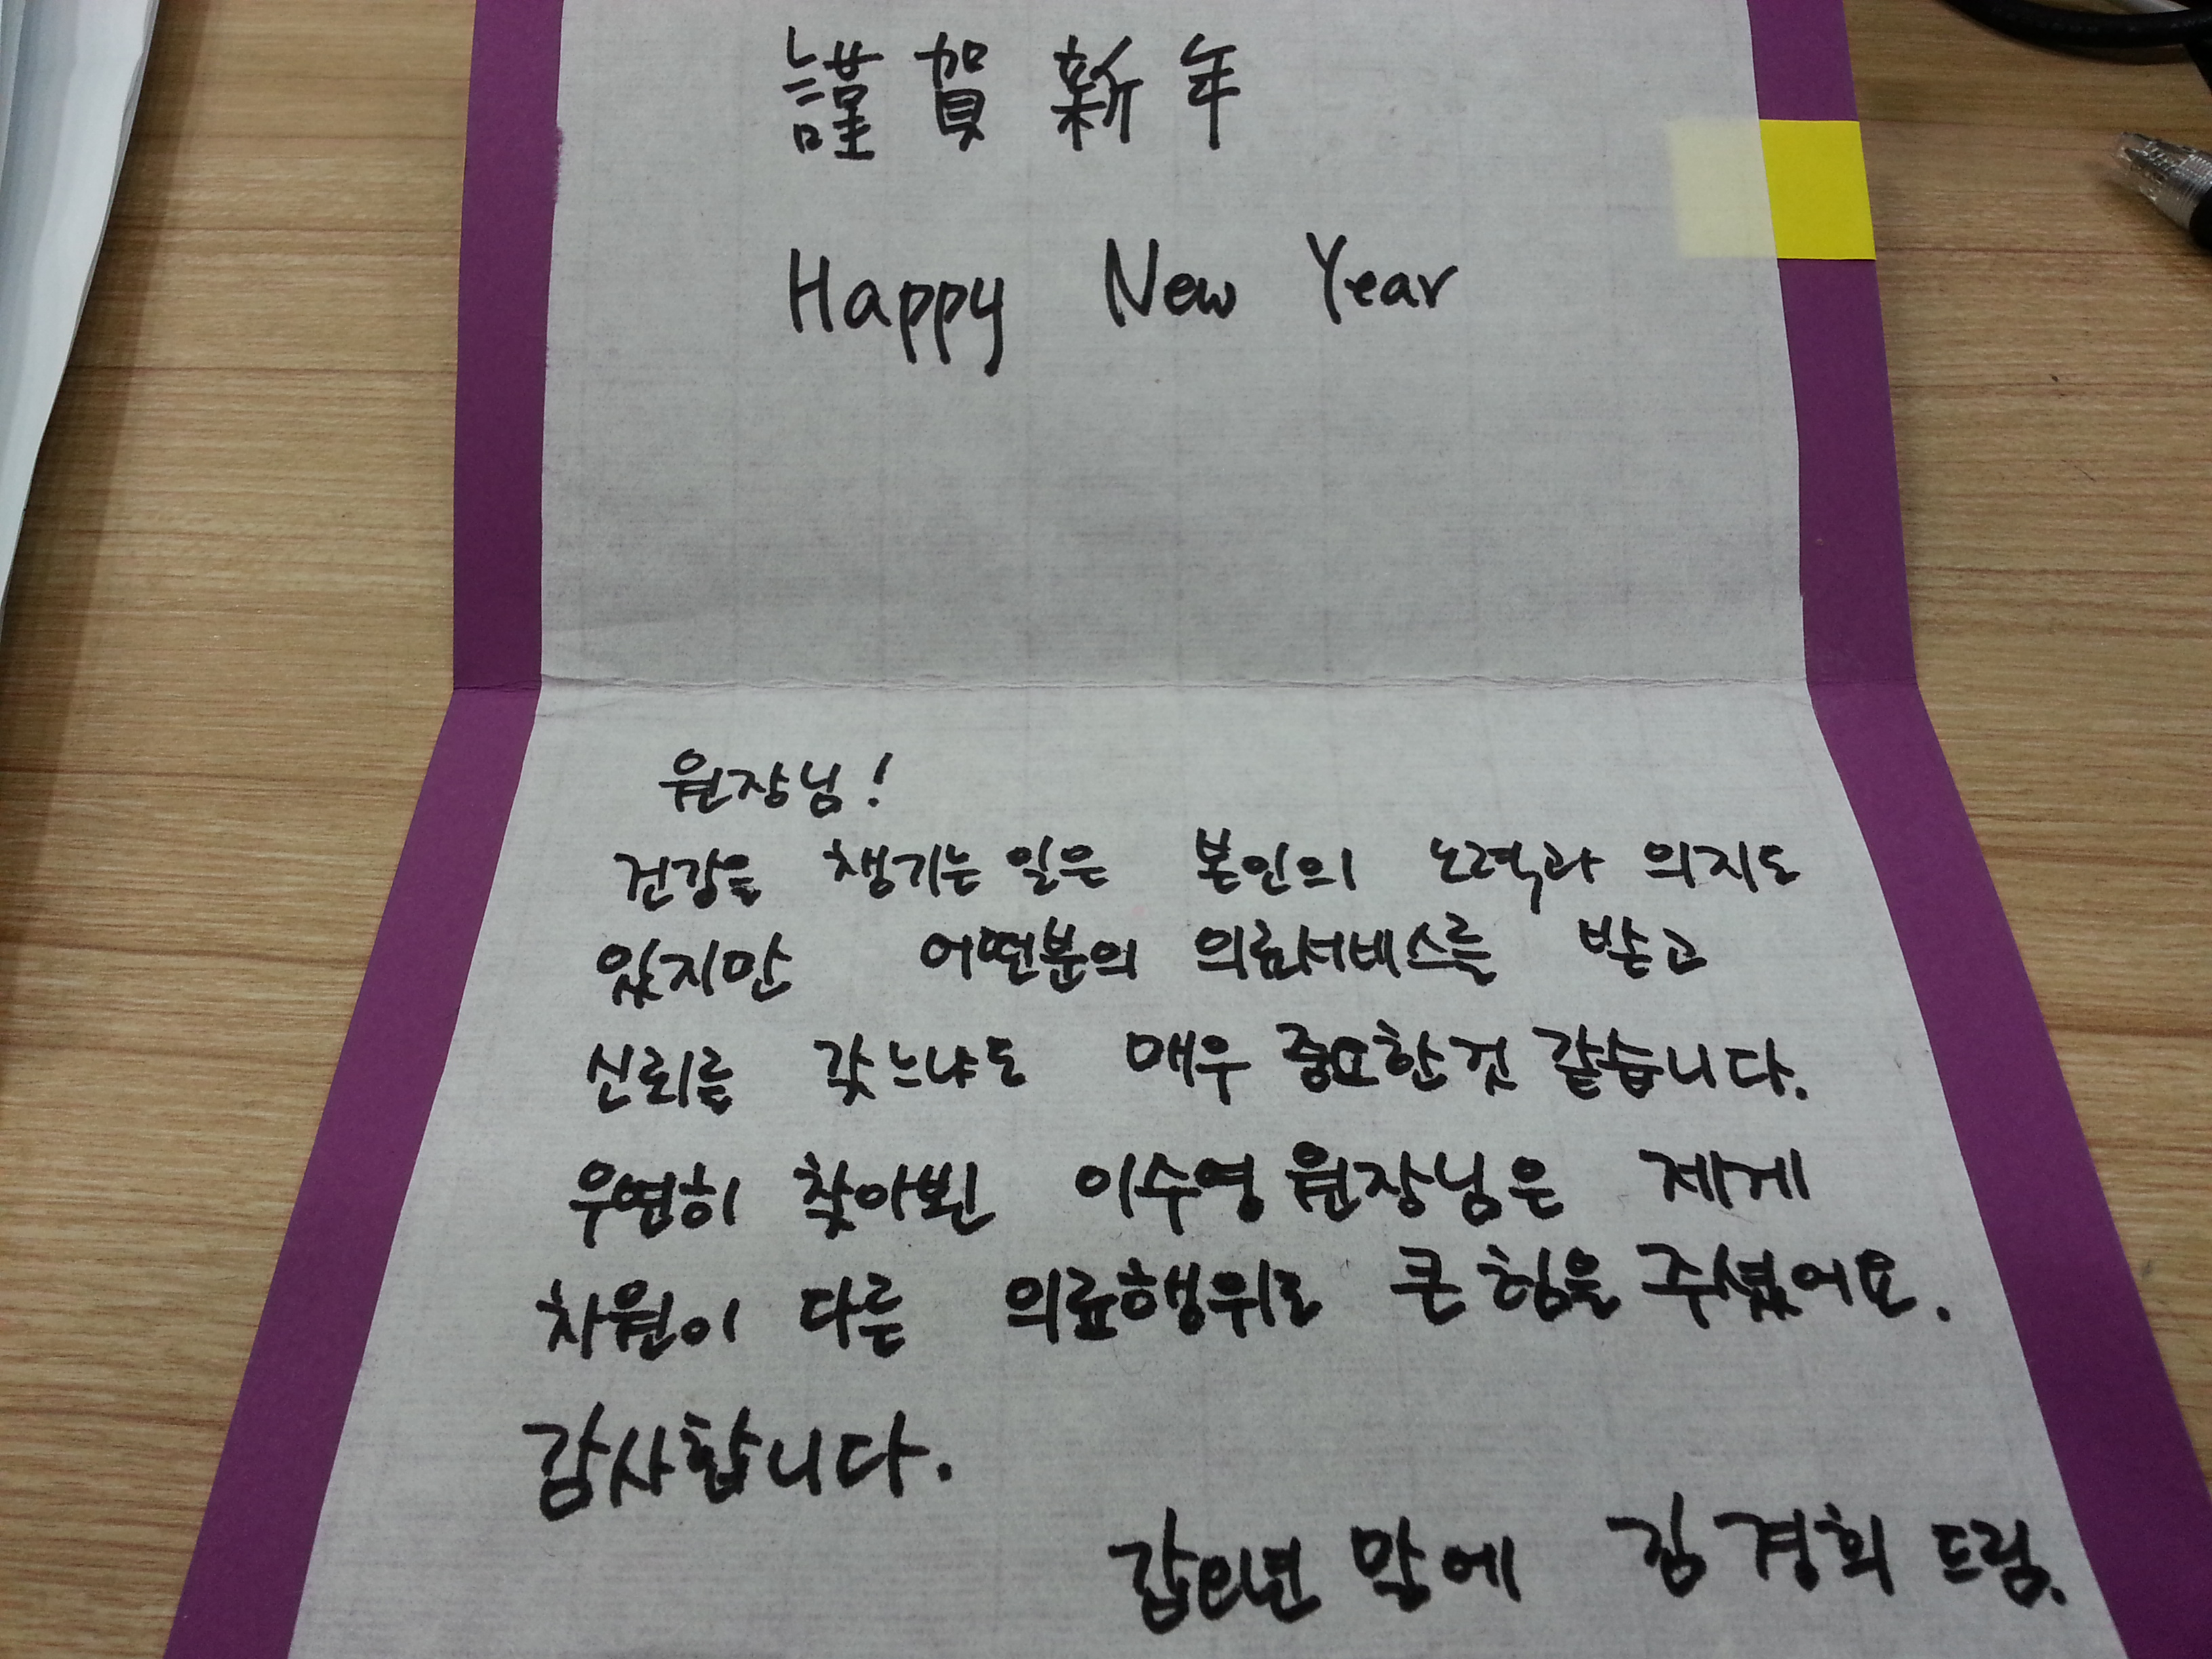 謹賀新年
Happy New Year
원장님!
건강을 챙기는 일은 본인의 노력과 의지도
있지만 어떤분의 의료서비스를 받고
신뢰를 갖느냐도 매우 중요한것 같습니다.
우연히 찾아뵌 이수영 원장님은 제게
차원이 다른 의료행위로 큰 힘을 주셨어요.
감사합니다.
갑오년 말에 김경희 드림.